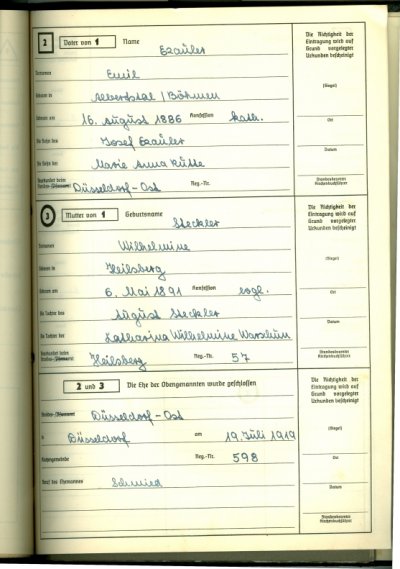 2 Vater von 1 Name
Ezaüler
Vornamen Emil
Geboren in Albersdtal / Böhmen
Geboren am 16. August 1886 Konfession kath.
Des Sohn des Josef Ezaüler
Der Sohn der Marie Anna Kütte
Beurkundet beim
Standes-(Pfarr)amt Düsseldorf-Ost Reg.-Nr.
Die Richtigkeit der
Eintragung wird auf
Grund vorgelegter
Urkunden bescheinigt
(Siegel)
Ort
Datum
Standesbeamter
Kirchenbuchführer
3 Mutter von 1 Geburtsname
Steckler
Vornamen Wilhelmine
Geboren in Heilsberg
Geboren am 6. Mai 1891 Konfession evgl.
Die Tochter des August Steckler
Die Tochter der Katharina Wilhelmine Warschun
Beurkundet beim
Standes-(Pfarr)amt Heilsberg Reg.-Nr. 57
Die Richtigkeit der
Eintragung wird auf
Grund vorgelegter
Urkunden bescheinigt
(Siegel)
Ort
Datum
Standesbeamter
Kirchenbuchführer
2 und 3 Die Ehe der Obengenannten wurde geschlossen
Standes-(Pfarr)amt Düsseldorf-Ost
in Düsseldorf am 19. Juli 1919
Kirchengemeinde Reg.-Nr. 598
Beruf des Ehemannes Schmied
Die Richtigkeit der
Eintragung wird auf
Grund vorgelegter
Urkunden bescheinigt
(Siegel)
Ort
Datum
Standesbeamter
Kirchenbuchführer